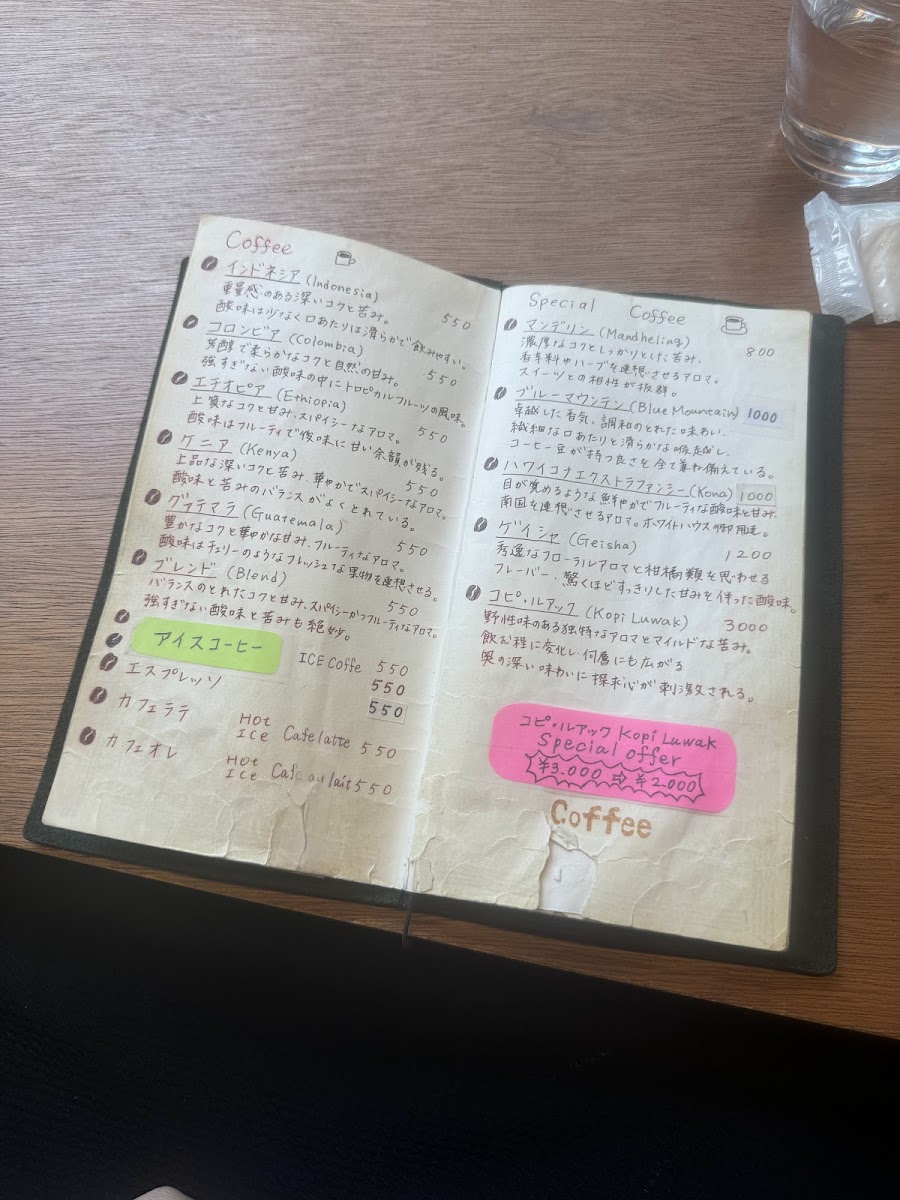 Coffee
インドネシア (Indonesia)
重量感のある深いコクと苦み。 550
酸味は少なく口あたりは滑らかで飲みやすい。
コロンビア (Colombia)
芳醇で柔らかなコクと自然の甘み。 550
強すぎない酸味の中にトロピカルフルーツの風味。
エチオピア (Ethiopia)
上質なコクと甘み、スパイシーなアロマ。 550
酸味はフルーティで後味に甘い余韻が残る。
ケニア (Kenya)
上品な深いコクと苦み、華やかでスパイシーなアロマ。 550
酸味と苦みのバランスがよくとれている。
グァテマラ (Guatemala)
豊かなコクと華やかな甘み、フルーティなアロマ。 550
酸味はチェリーのようなフレッシュな果物を連想させる。
ブレンド (Blend)
バランスのとれたコクと甘み、スパイシーかつフルーティなアロマ。 550
強すぎない酸味と苦みも絶妙。
アイスコーヒー ICE Coffe 550
550
エスプレッソ 550
カフェラテ Hot Ice Cafe latte 550
カフェオレ Hot Ice Caf au lait 550
Special Coffee
マンデリン (Mandheling) 800
濃厚なコクとしっかりとした苦み、
香辛料やハーブを連想させるアロマ。
スイーツとの相性が抜群。
ブルーマウンテン (Blue Mountain) 1000
卓越した香気、調和のとれた味わい、
繊細な口あたりと滑らかな喉越し、
コーヒー豆が持つ良さを全て兼ね備えている。
ハワイコナエクストラファンシー (Kona) 1000
目が覚めるような鮮やかでフルーティな酸味と甘み、
南国を連想させるアロマ。ホワイトハウス御用達。
ゲイシャ (Geisha) 1200
秀逸なフローラルアロマと柑橘類を思わせる
フレーバー、驚くほどすっきりした甘みを伴った酸味。
コピ・ルアック (Kopi Luwak) 3000
野性味のある独特なアロマとマイルドな苦み。
飲む程に変化し、何層にも広がる
奥の深い味わいに探求心が刺激される。
コピ・ルアック Kopi Luwak
Special offer
¥3.000 ⇨ ¥2.000
Coffee